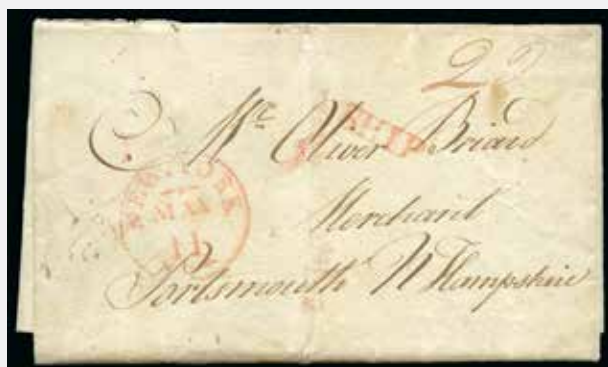 22
SHIP
Mr Oliver Briard
NEW-YORK
MAY
11
Merchant
Portsmouth N Hampshire